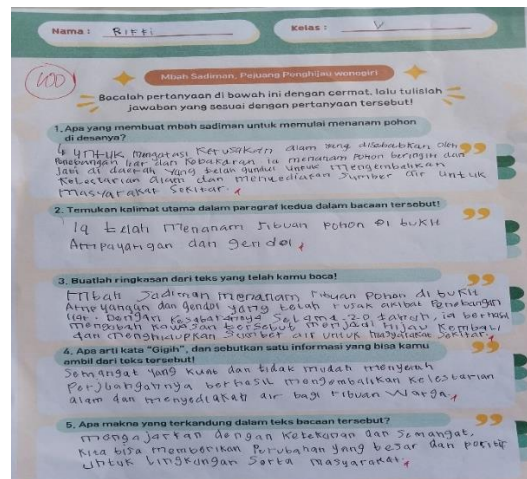 Nama : Riffi
Kelas : V
100
Mbah Sadiman, Pejuang Penghijau wonogiri
Bacalah pertanyaan di bawah ini dengan cermat, lalu tulislah
jawaban yang sesuai dengan pertanyaan tersebut!
1. Apa yang membuat mbah sadiman untuk memulai menanam pohon
di desanya?
untuk mengatasi Kerusakan alam yang disebabkan oleh
Penebangan liar dan Kebakaran. Ia menanam Pohon beringin dan
Jati di daerah yang telah gundul untuk mengembalikan
Kelestarian alam dan menyediakan Sumber air untuk
masyarakat Sekitar.
2. Temukan kalimat utama dalam paragraf kedua dalam bacaan tersebut!
Ia telah Menanam ribuan pohon di bukit
Ampayangan dan gendol
3. Buatlah ringkasan dari teks yang telah kamu baca!
Mbah Sadiman menanam ribuan Pohon di bukit
Ampayangan dan gendol yang telah rusak akibat Penebangan
liar. Dengan Kesabarannya Selama 20 tahun, ia berhasil
mengubah Kawasan tersebut menjadi hijau Kembali
dan menghidupkan Sumber air untuk masyarakat Sekitar.
4. Apa arti kata "Gigih", dan sebutkan satu informasi yang bisa kamu
ambil dari teks tersebut!
Semangat yang Kuat dan tidak mudah menyerah
Perjuangannya berhasil mengembalikan Kelestarian
alam dan menyediakan air bagi ribuan Warga.
5. Apa makna yang terkandung dalam teks bacaan tersebut?
mengajarkan dengan Ketekunan dan Semangat,
Kita bisa memberikan Perubahan yang besar dan positif
untuk Lingkungan Serta masyarakat.